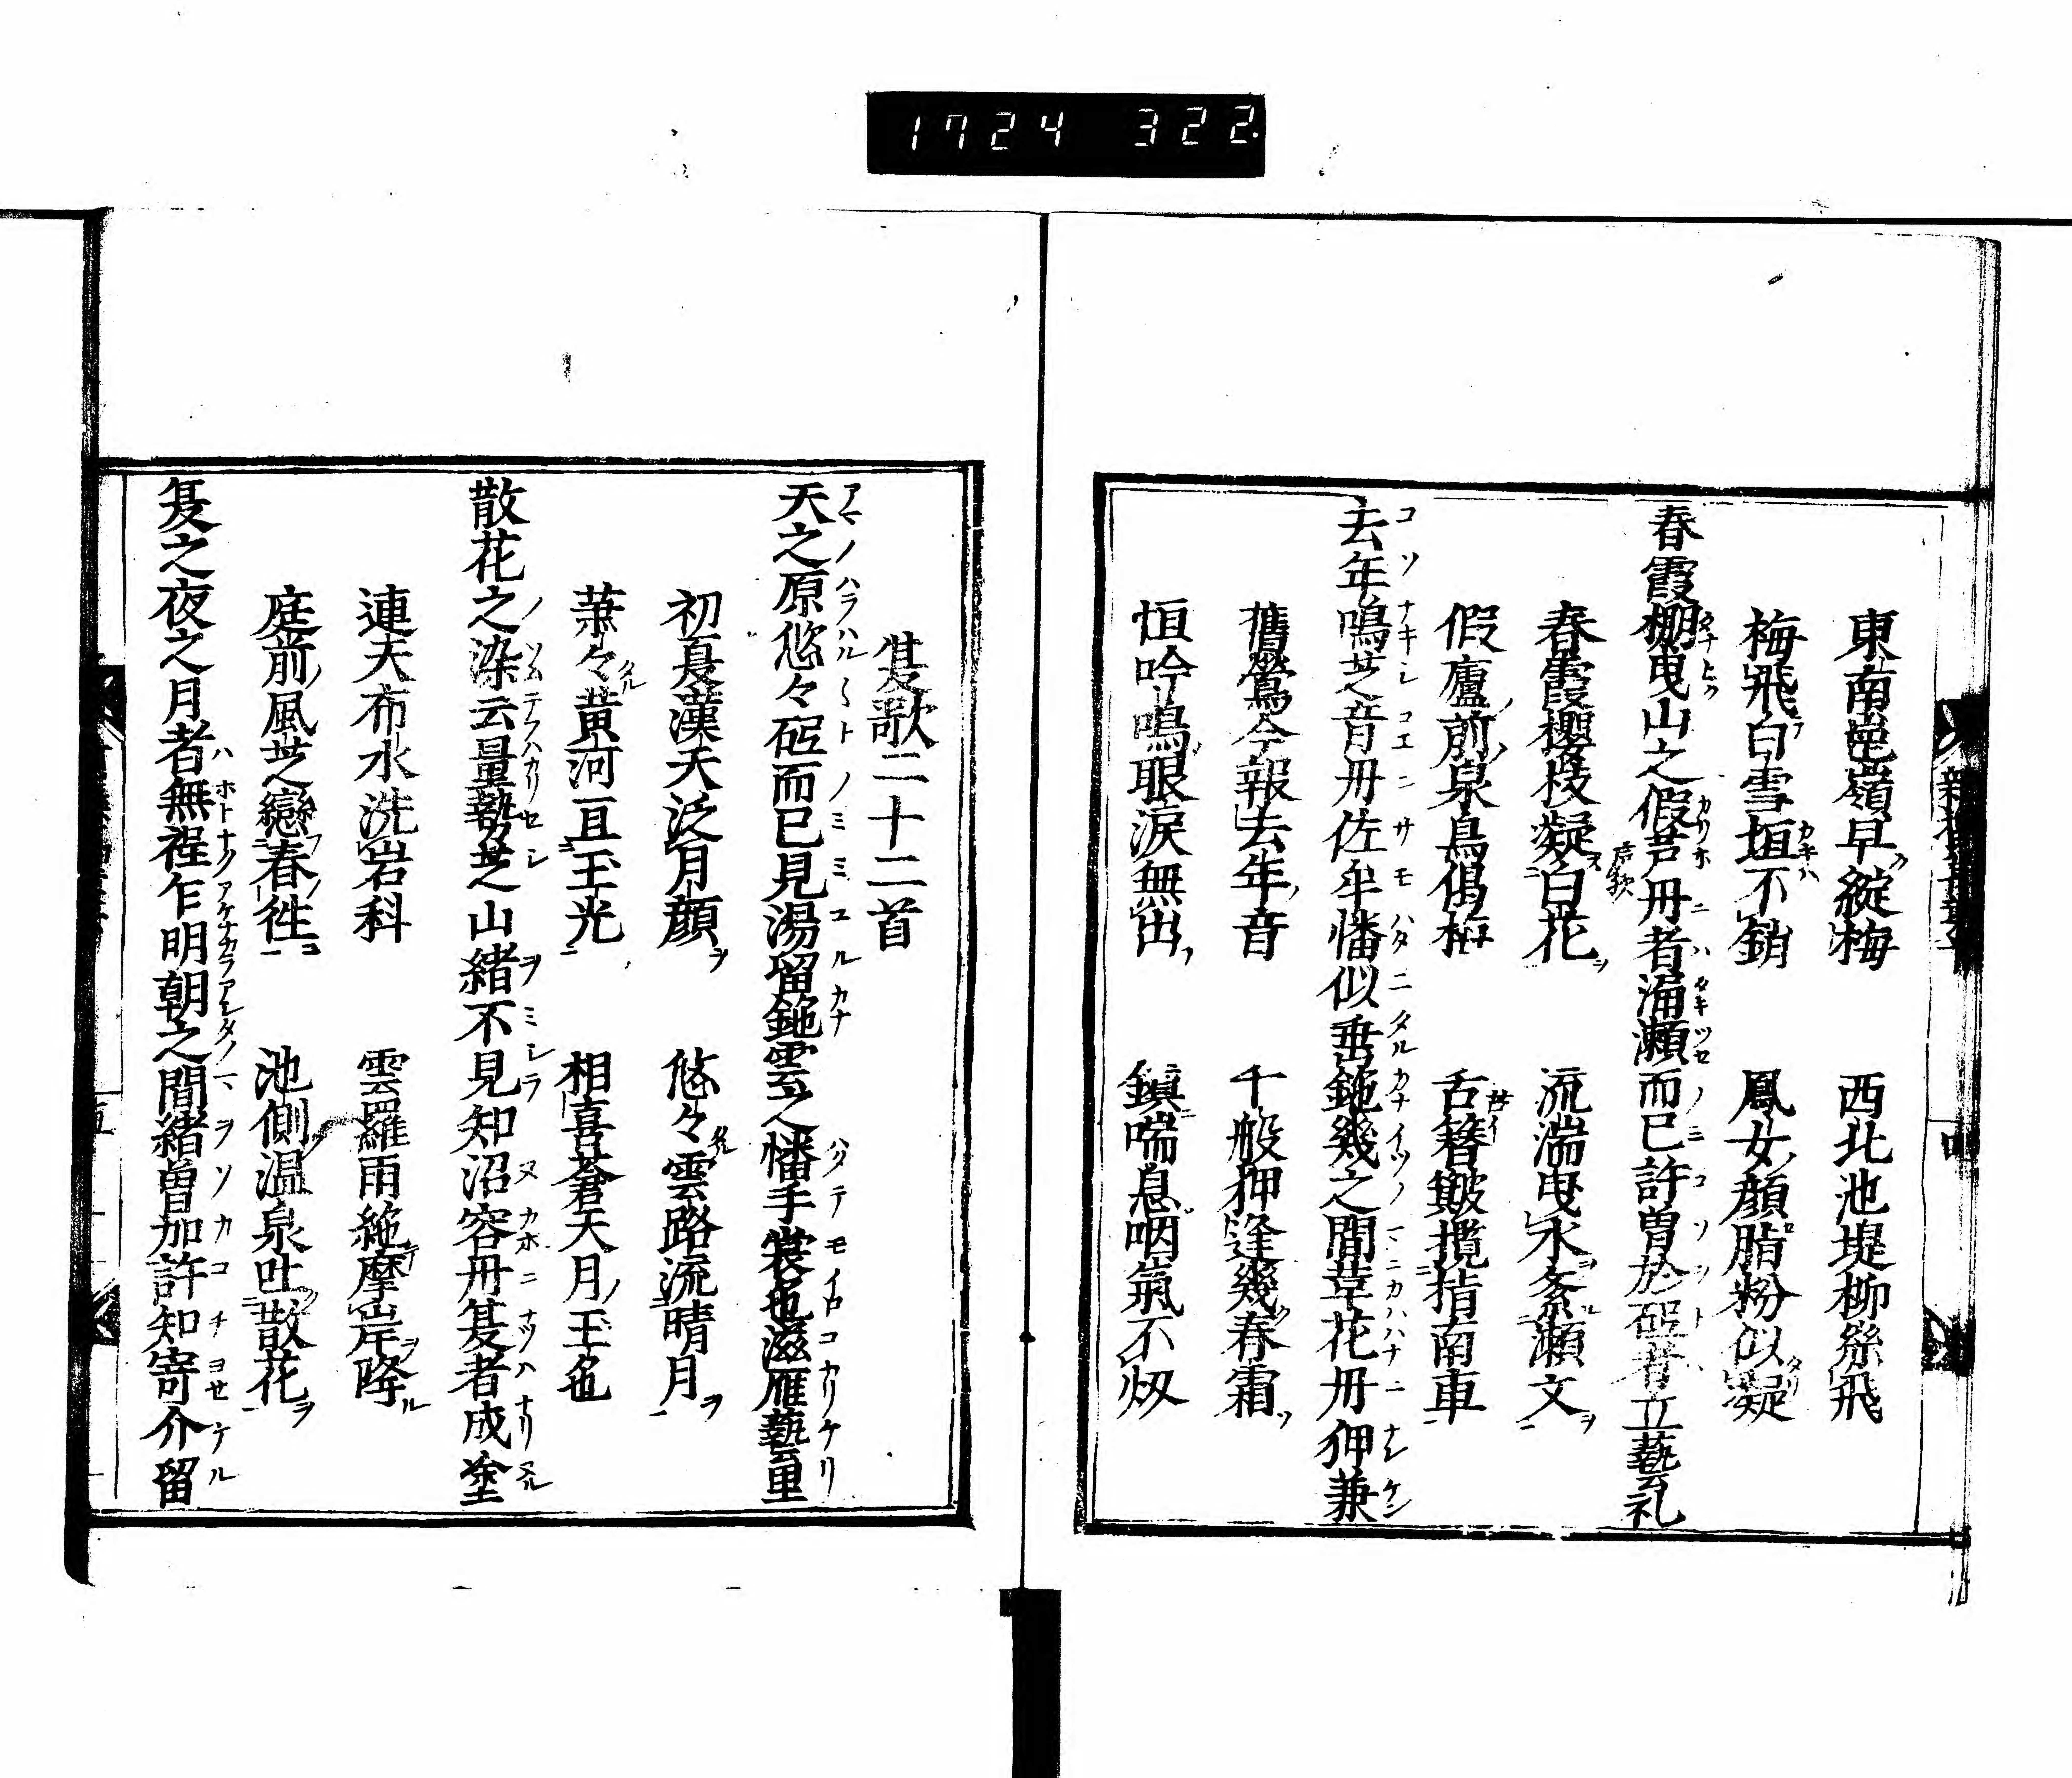 1724 322
東南邕嶺早綻梅　西北池堤柳絲飛
梅飛白雪垣不銷　鳳女顔脂粉似凝
春霞棚曳山之假芦丹者滝瀬而已許曾於砥者立藝礼
春霞櫻枝凝白花　流湍曳水紊瀬文
假廬前泉鳥偈梅　舌簪皺攬指南車
去年鳴芝音丹佐牟幡似垂鉇幾之間草花丹狎兼
舊鶯今報去年音　千般狎逢幾春霜
恒吟鳴眼涙無出　鎮喘息咽氣不
夏歌二十二首
天之原悠々砥而已見湯留鉇雲之幡手裳也滋雁藝里
初夏漢天泛月顔　悠々雲路流晴月
蕭々黄河亘玉光　相喜蒼天月玉也
散花之染云量勢芝山緒不見知沼容丹夏者成塗
連天布水洗岩科　雲羅雨絶摩岸降
庭前風芝戀春往　池側温泉吐散花
夏之夜之月者無程乍明朝之間緒曽加許知寄介留